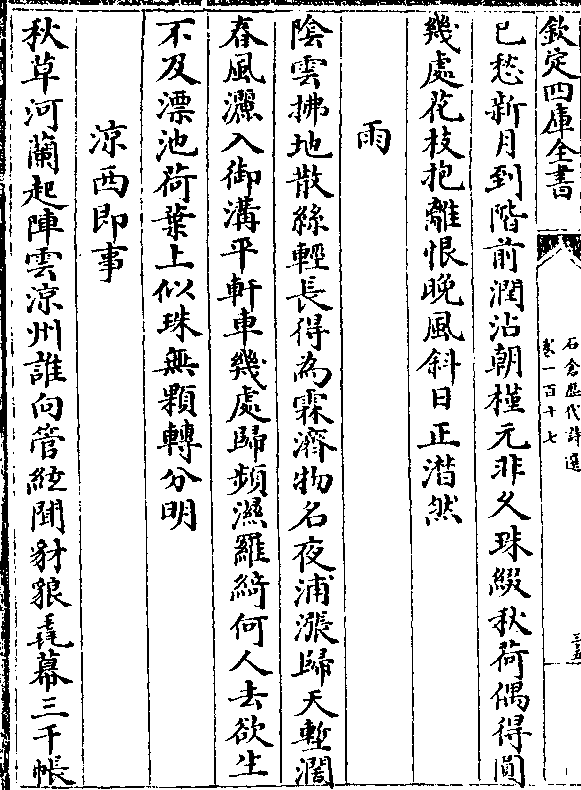 欽定四庫全書
石倉歷代詩選
卷一百十七
三五
已愁新月到階前潤沾朝槿元非久珠綴秋荷偶得圓
幾處花枝抱離恨晚風斜日正潸然
雨
陰雲拂地散絲輕長得為霖濟物名夜浦漲歸天塹濶
春風灑入御溝平軒車幾處歸頻濕羅綺何人去欲生
不及漂池荷葉上似珠無顆轉分明
涼西即事
秋草河蘭起陣雲涼州誰向管絃聞豺狼毳幕三千帳